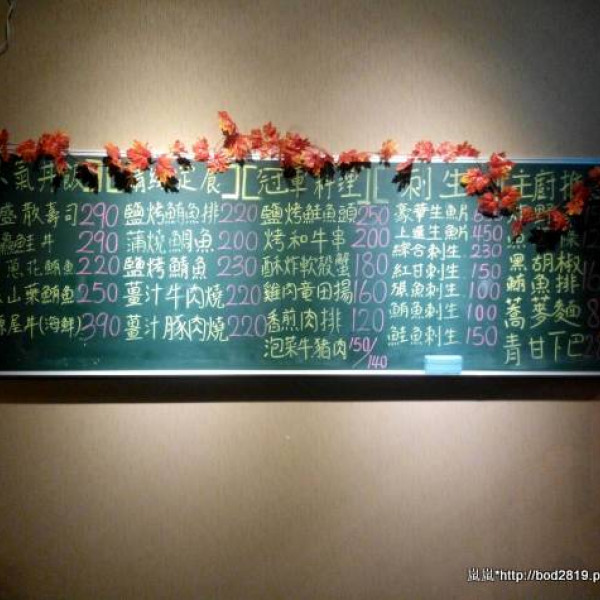 氣丼飯
散壽司 290
鮭牛 290
蔥花鮪魚 220
山藥鮪魚 250
屋牛(海鮮) 390
定食
鹽烤鯖魚排 220
蒲燒鯛魚 200
鹽烤鯖魚 230
薑汁牛肉燒 220
薑汁豚肉燒 220
冠軍料理
鹽烤鮭魚頭 250
烤和牛串 200
酥炸軟殼蟹 180
雞肉竜田揚 160
香煎肉排 120
泡菜牛豬肉 150/140
刺生
豪華生魚片
上進生魚片 450
綜合刺生 230
紅甘刺生 150
旗魚刺生 100
鮪魚刺生 100
鮭魚刺生 150
主廚推
黑胡椒
鮪魚排
蕎麥麵
青甘下巴
嵐嵐*http://bod2819.p